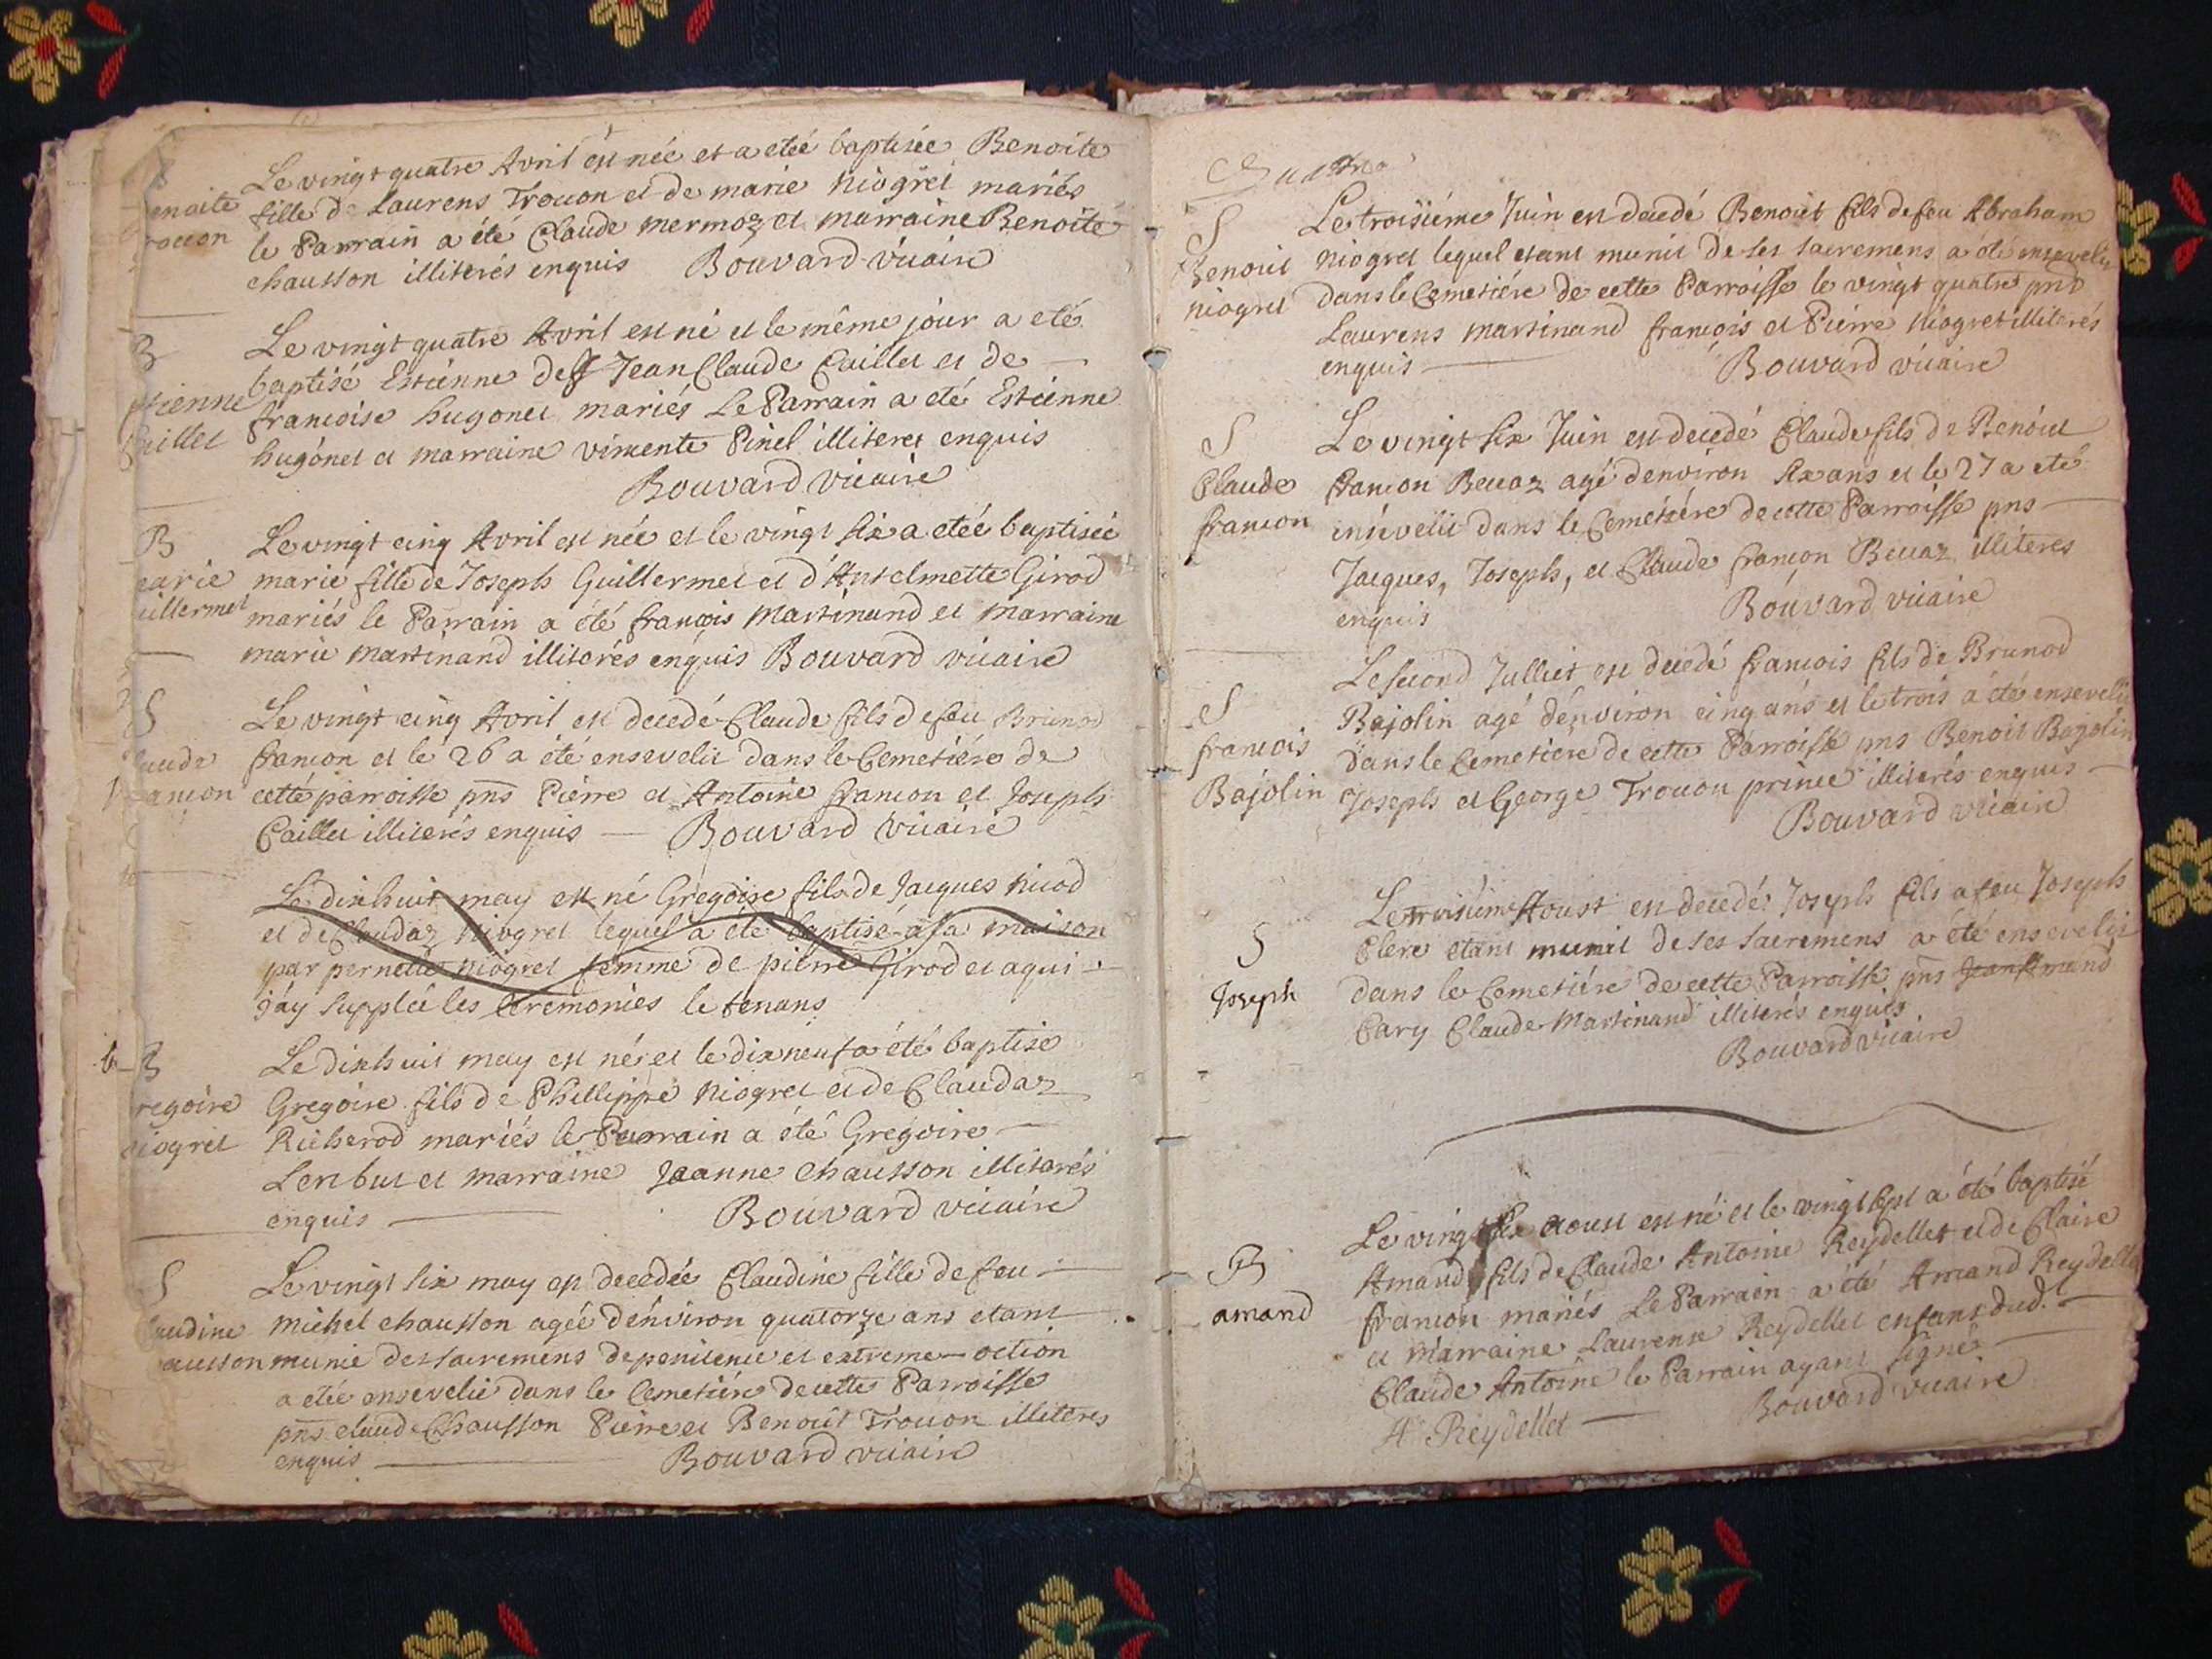 B
Le vingt quatre Avril est née et a etée baptisée Benoite
enoite
fille de Laurens Troccon et de marie Niogret mariés
roccon
le Parrain a été Claude mermoz et marraine Benoite
chausson illiterés enquis Bouvard vicaire
B
Le vingt quatre Avril est né et le même jour a eté
baptisé Estienne de Jean Claude Caillet et de
stienne
francoise hugonet mariés Le Parrain a eté Estienne
Caillet
hugonet et marraine vincente Pinel illiteret enquis
Bouvard vicaire
B
Le vingt cinq Avril est née et le vingt six a etée baptisée
arie
marie fille de Joseph Guillermet et d'Anselmette Girod
uillermet
mariés le Parrain a été francois Martinand et marraine
marie martinand illiterés enquis Bouvard vicaire
S
Le vingt cinq Avril est decedé Claude fils de feu Brunod
aude
francon et le 26 a été ensevelit dans le Cemetiére de
ancon
cette parroisse pns Pierre et Antoine francon et Joseph
Caillet illiterés enquis — Bouvard vicaire
Le dixhuit may est né Gregoire fils de Jacques Nicod
et de Claudaz Niogret lequel a été baptisé a sa maison
par pernette niogret femme de pierre Girod et a qui
j'ay supplée les Ceremonies le tenans
B
Le dixhuit may est né et le dixneuf a été baptise
regoire
Gregoire fils de Phillippe Niogret et de Claudaz
iogret
Richerod mariés le Parrain a été Gregoire —
et marraine Jeanne Chausson illiterés
enquis — Bouvard vicaire
S
Le vingt six may est decedée Claudine fille de feu —
audine
michel chausson agée d'environ quatorze ans etant
ausson
munie des sacremens de penitence et extreme-oction
a etée ensevelie dans le Cemetiére de cette Parroisse
pns claude Chausson Pierre et Benoit Troccon illiteres
enquis — Bouvard vicaire
Le troisiéme Juin est decedé Benoit fils de feu Abraham
S
Benoit
Niogret lequel etant munit de ses sacremens a été ensevelit
niogret
dans le Cemetiére de cette Parroisse le vingt quatre pnd
Laurens martinand françois et Pierre Niogret illiterés
enquis — Bouvard vicaire
S
Le vingt six Juin est decedé Claude fils de Benoit
Claude
francon Beccaz agé d'environ six ans et le 27 a eté
francon
ensevelit dans le Cemetiére de cette Parroisse pns —
Jacques, Joseph, et Claude francon Beccaz illiteres
enquis Bouvard vicaire
Le second Julliet est decedé francois fils de Brunod
S
Bajolin agé d'environ cinq ans et le trois a été ensevelit
francois
dans le Cemetiere de cette Parroisse pns Benoit Bagolin
Bajolin
Joseph et George Troccon prince illiterés enquis —
Bouvard vicaire
Le troisiéme Aoust est decedé Joseph fils a feu Joseph
S
Clerc etant munit de ses sacremens a été ensevelit
Joseph
dans le Cemetiére de cette Parroisse pns
Cary Claude Martinand illiterés enquis
Bouvard vicaire
Le vingt six aoust est né et le vingt sept a été baptisé
B
Amand fils de Claude Antoine Reydellet et de Claire
amand
francon mariés Le Parrain a été Amand Reydellet
et Marraine Laurense Reydellet enfans dud. —
Claude Antoine le Parrain ayant signé —
A Reydellet — Bouvard vicaire